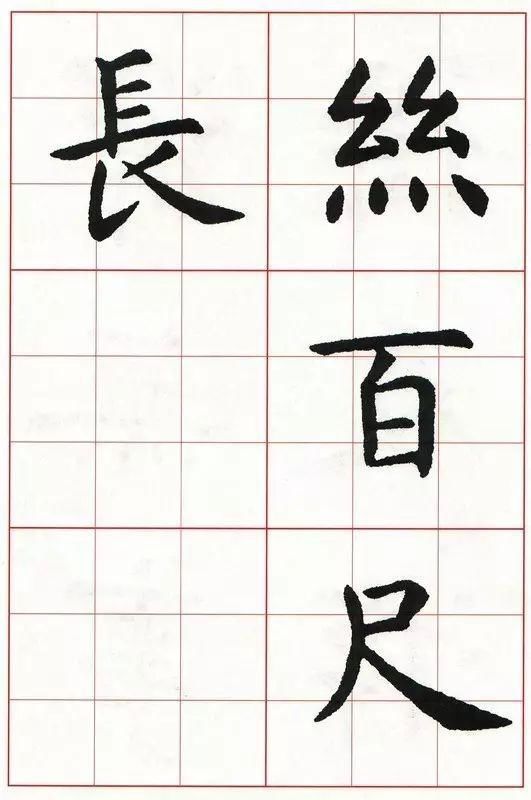 絲百尺
長